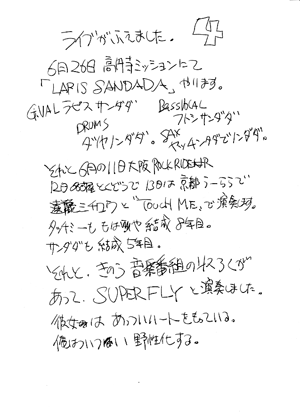 ライブがふえました。 4
6月26日高円寺ミッションにて
「LAPIS SANDADA」やります。
G.VAL ラピスサンダダ BASSVOCAL
フトシサンダダ
DRUMS
ダツヤノンダダ。SAX
ヤッチンタダでノンダダ。
それと6月の11日大阪ROCKRIDER
12日 とくぞうで 13日は京都うーららで
遠藤ミチロウと「TOUCH ME」で演奏スル。
タッチミーももはや結成8年目。
サンダダも結成5年目。
それと、きのう音楽番組の収ろくが
あって、SUPERFLYと演奏しました。
彼女は あっついハートをもっている。
俺はついつい野性化する。